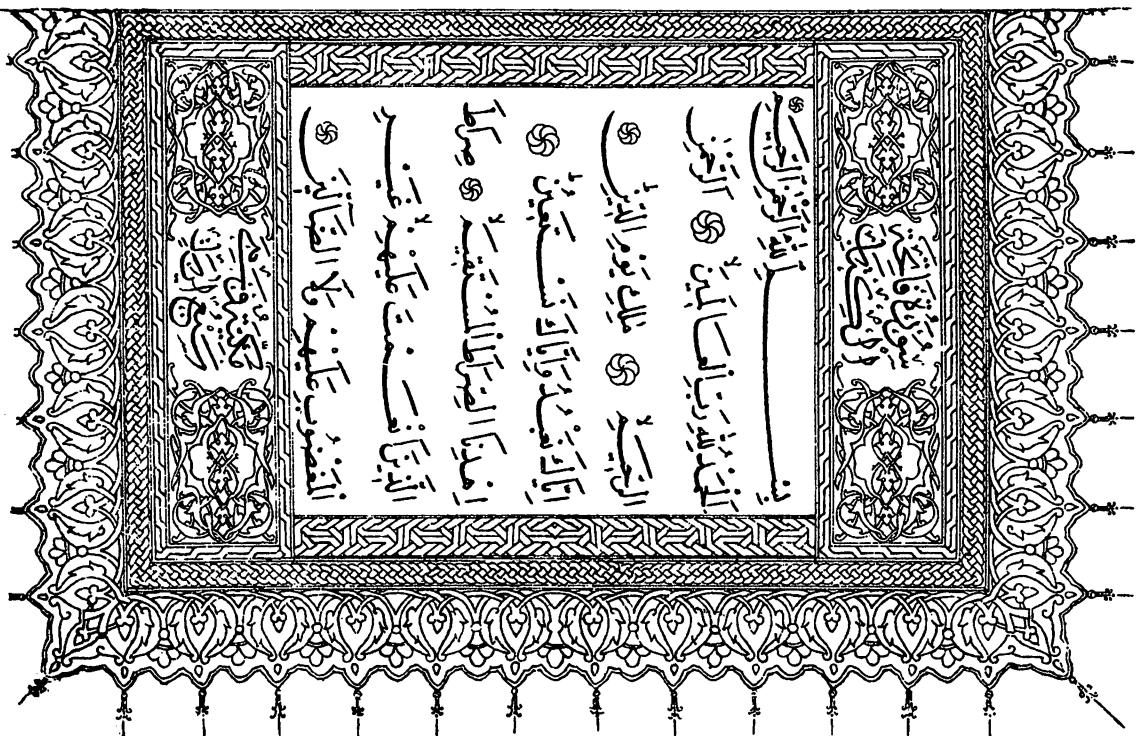 سُورَةُ فَاتِحَةِ
بِسْمِ ٱللَّهِ ٱلرَّحْمَٰنِ ٱلرَّحِيمِ
ٱلْحَمْدُ لِلَّهِ رَبِّ ٱلْعَالَمِينَ ٱلرَّحْمَٰنِ
ٱلرَّحِيمِ مَالِكِ يَوْمِ ٱلدِّينِ
إِيَّاكَ نَعْبُدُ وَإِيَّاكَ نَسْتَعِينُ
ٱهْدِنَا ٱلصِّرَاطَ ٱلْمُسْتَقِيمَ صِرَاطَ
ٱلَّذِينَ أَنْعَمْتَ عَلَيْهِمْ غَيْرِ
ٱلْمَغْضُوبِ عَلَيْهِمْ وَلَا ٱلضَّالِّينَ